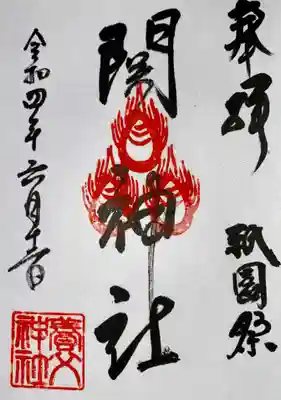 奉拝
祇園祭
関神社
令和四年六月十日
神社